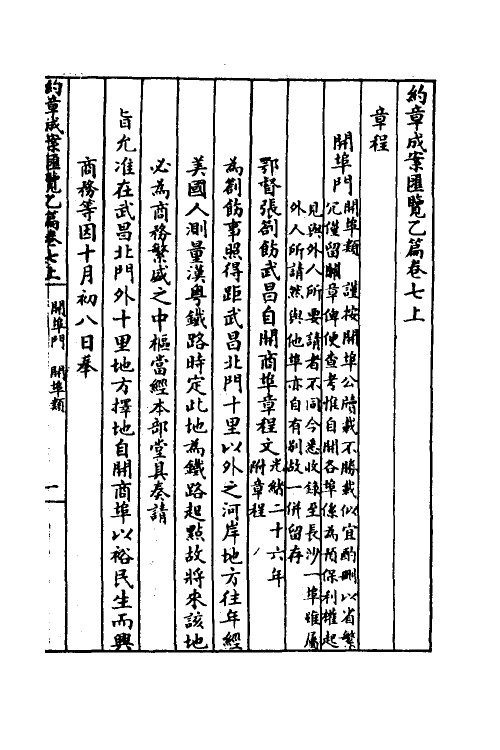 約章成案匯覽乙篇卷七上
章程
開埠門 開埠類 謹按開埠公牘載不勝載似宜酌刪以省繁
冗僅留關章俾便查考惟自開各埠係為隱保利權起
見與外人所要請者不同今悉收錄至長沙一埠雖屬
外人所請然與他埠亦自有別故一併留存
鄂督張劄飭武昌自開商埠章程文 光緒二十六年
附章程
為劄飭事照得距武昌北門十里以外之河岸地方往年經
美國人測量漢粵鐵路時定此地為鐵路起點故將來該地
必為商務繁盛之中樞當經本部堂具奏請
旨允准在武昌北門外十里地方擇地自開商埠以裕民生而興
商務等因十月初八日奉
約章成案匯覽乙篇卷七上 開埠門 開埠類 一